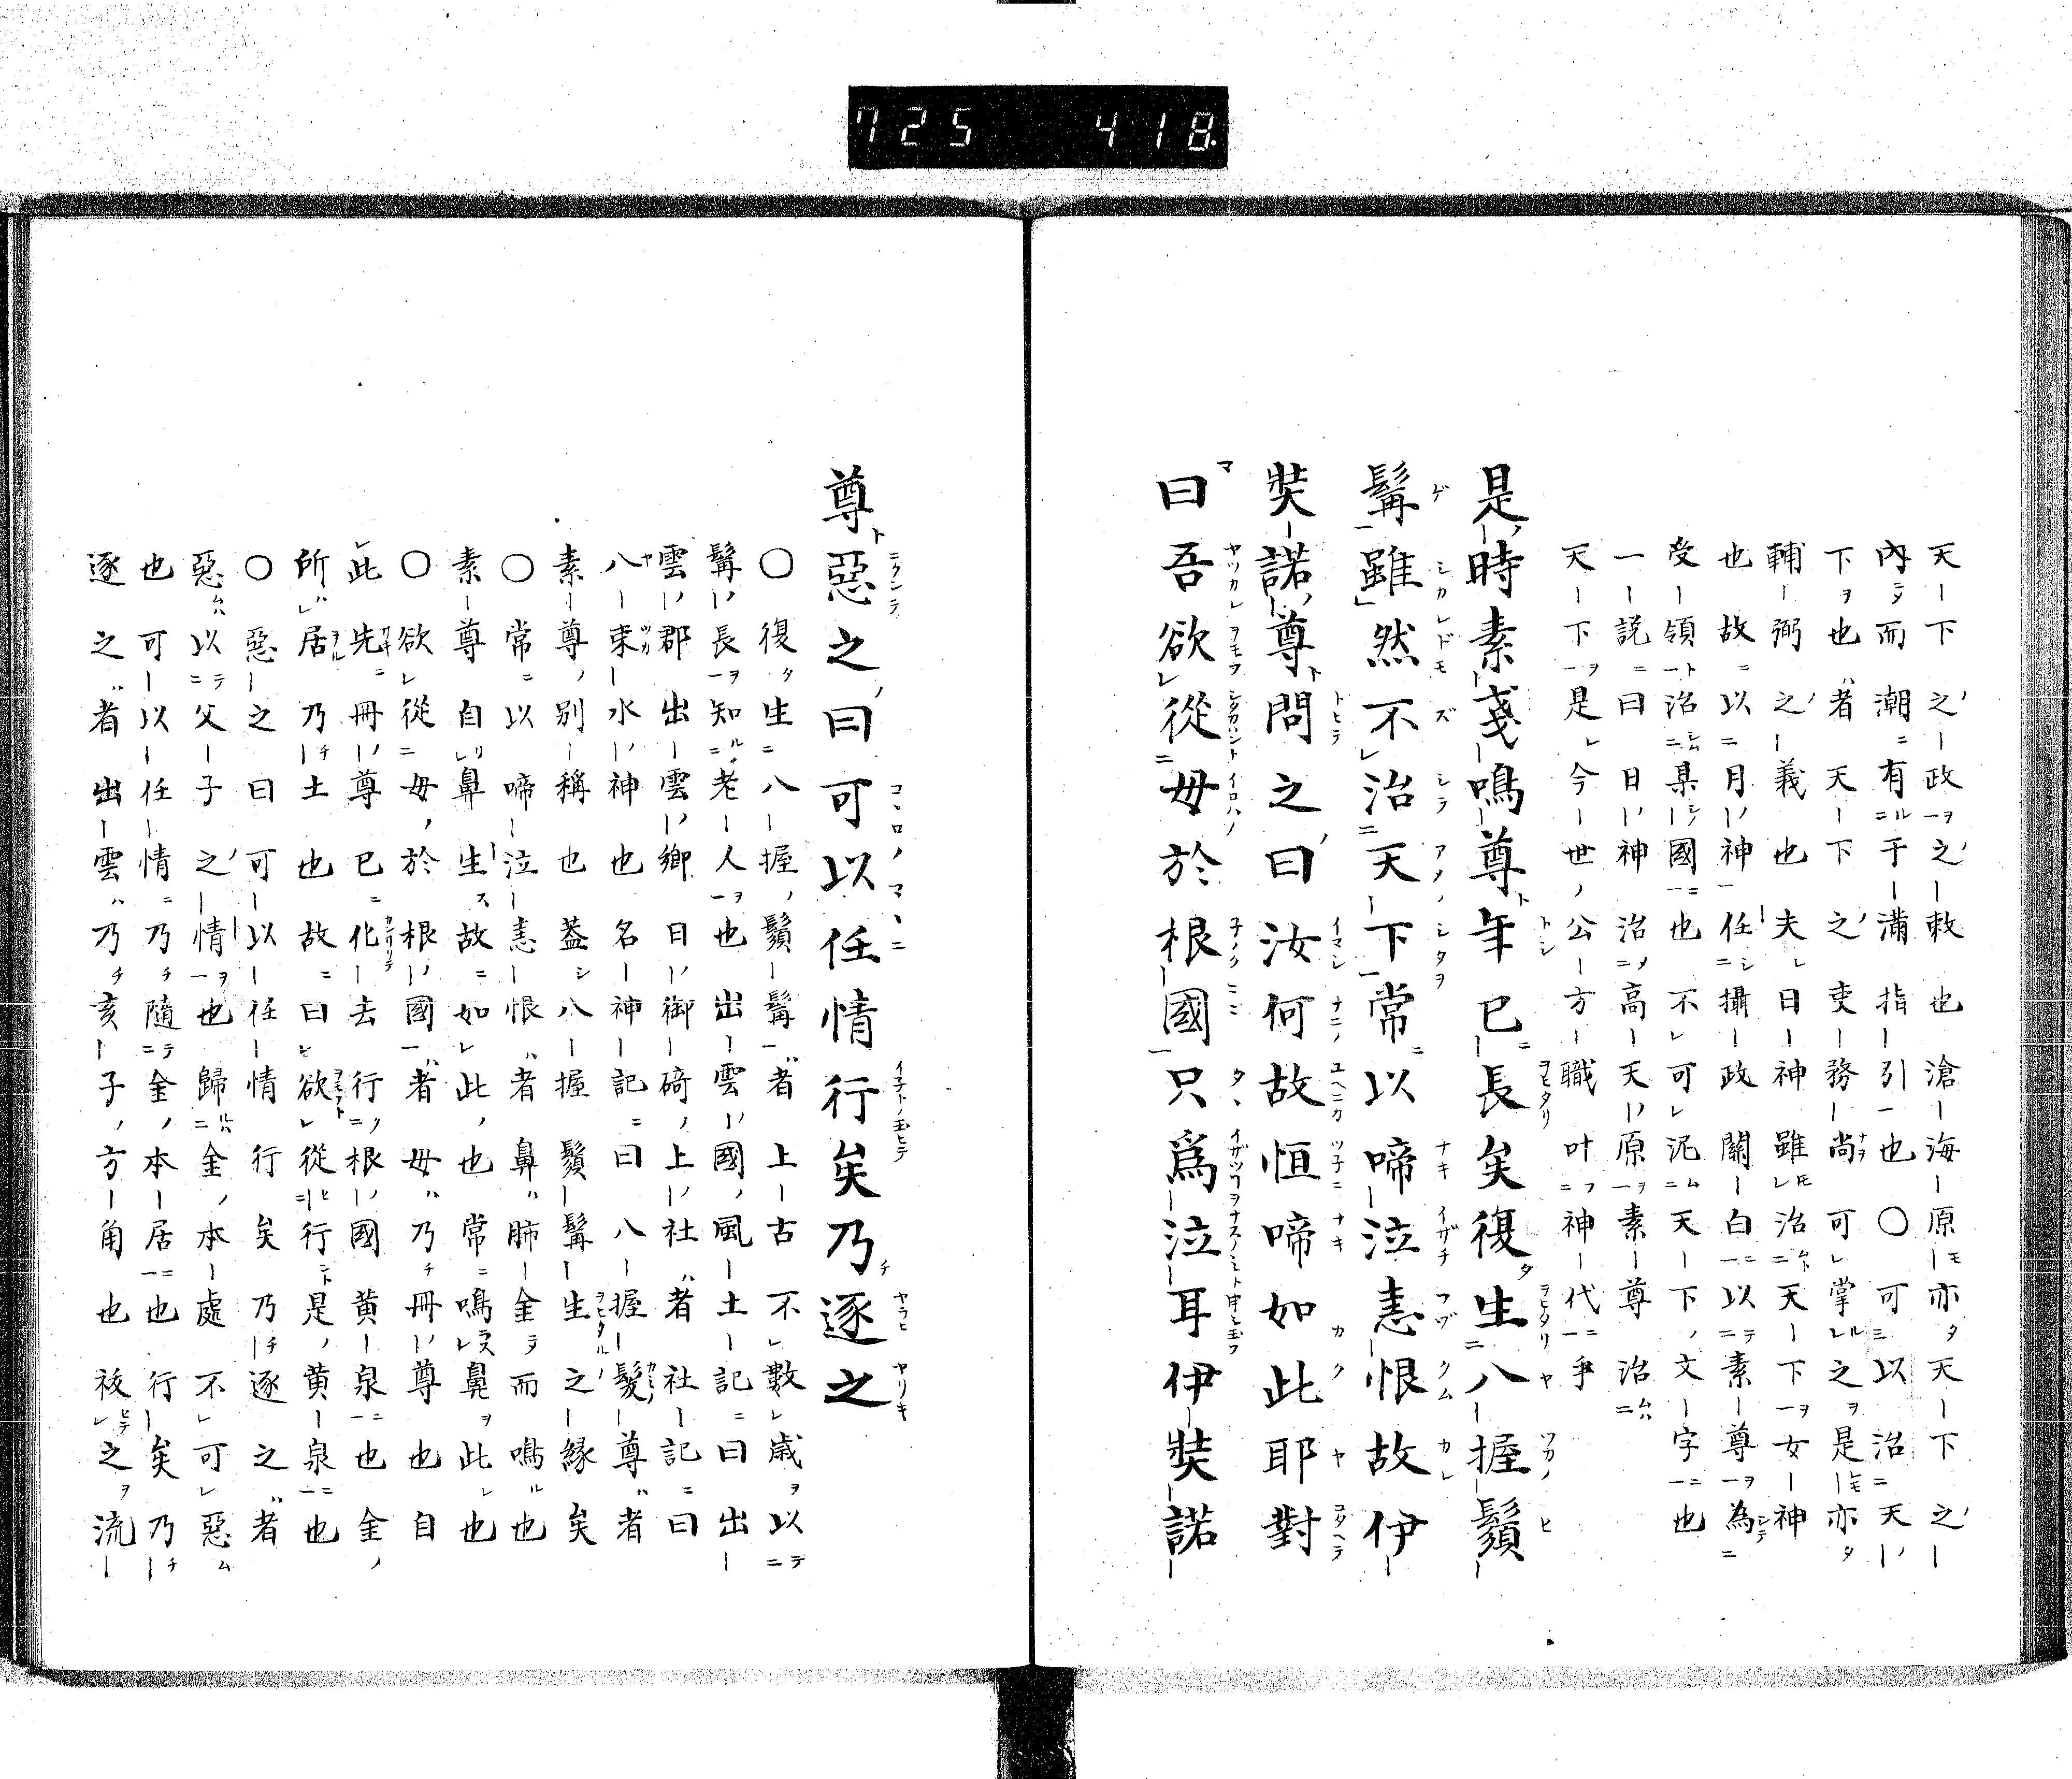 725 418
天下之政之敕也滄海原亦天下之
內而潮有于滿指引也〇可以治天
下也者天下之吏務尚可掌之是亦
輔弼之義也夫日神雖治天下女神
也故以月神任攝政關白以素尊為
受領治某國也不可泥天下文字也
一說曰日神治高天原素尊治
天下是今世公方職叶神代乎
是時素戔鳴尊年已長矣復生八握鬚
髯雖然不治天下常以啼泣恚恨故伊
弉諾尊問之曰汝何故恒啼如此耶對
曰吾欲從母於根國只爲泣耳伊弉諾
尊惡之曰可以任情行矣乃逐之
〇復生八握鬚髯者上古不數歲以
髯長知老人也出雲國風土記曰出
雲郡出雲鄉日御碕上社者社記曰
八束水神也名神記曰八握髮尊者
素尊別稱也蓋八握鬚髯生之緣矣
〇常以啼泣恚恨者鼻肺金而鳴也
素尊自鼻生故如此也常鳴鼻此也
〇欲從母於根國者母乃冊尊也自
此先冊尊已化去行根國黃泉也金
所居乃土也故曰欲從行是黃泉也
〇惡之曰可以任情行矣乃逐之者
惡以父子之情也歸金本處不可惡
也可以任情乃隨金本居也行矣乃
逐之者出雲乃亥子方角也祓之流